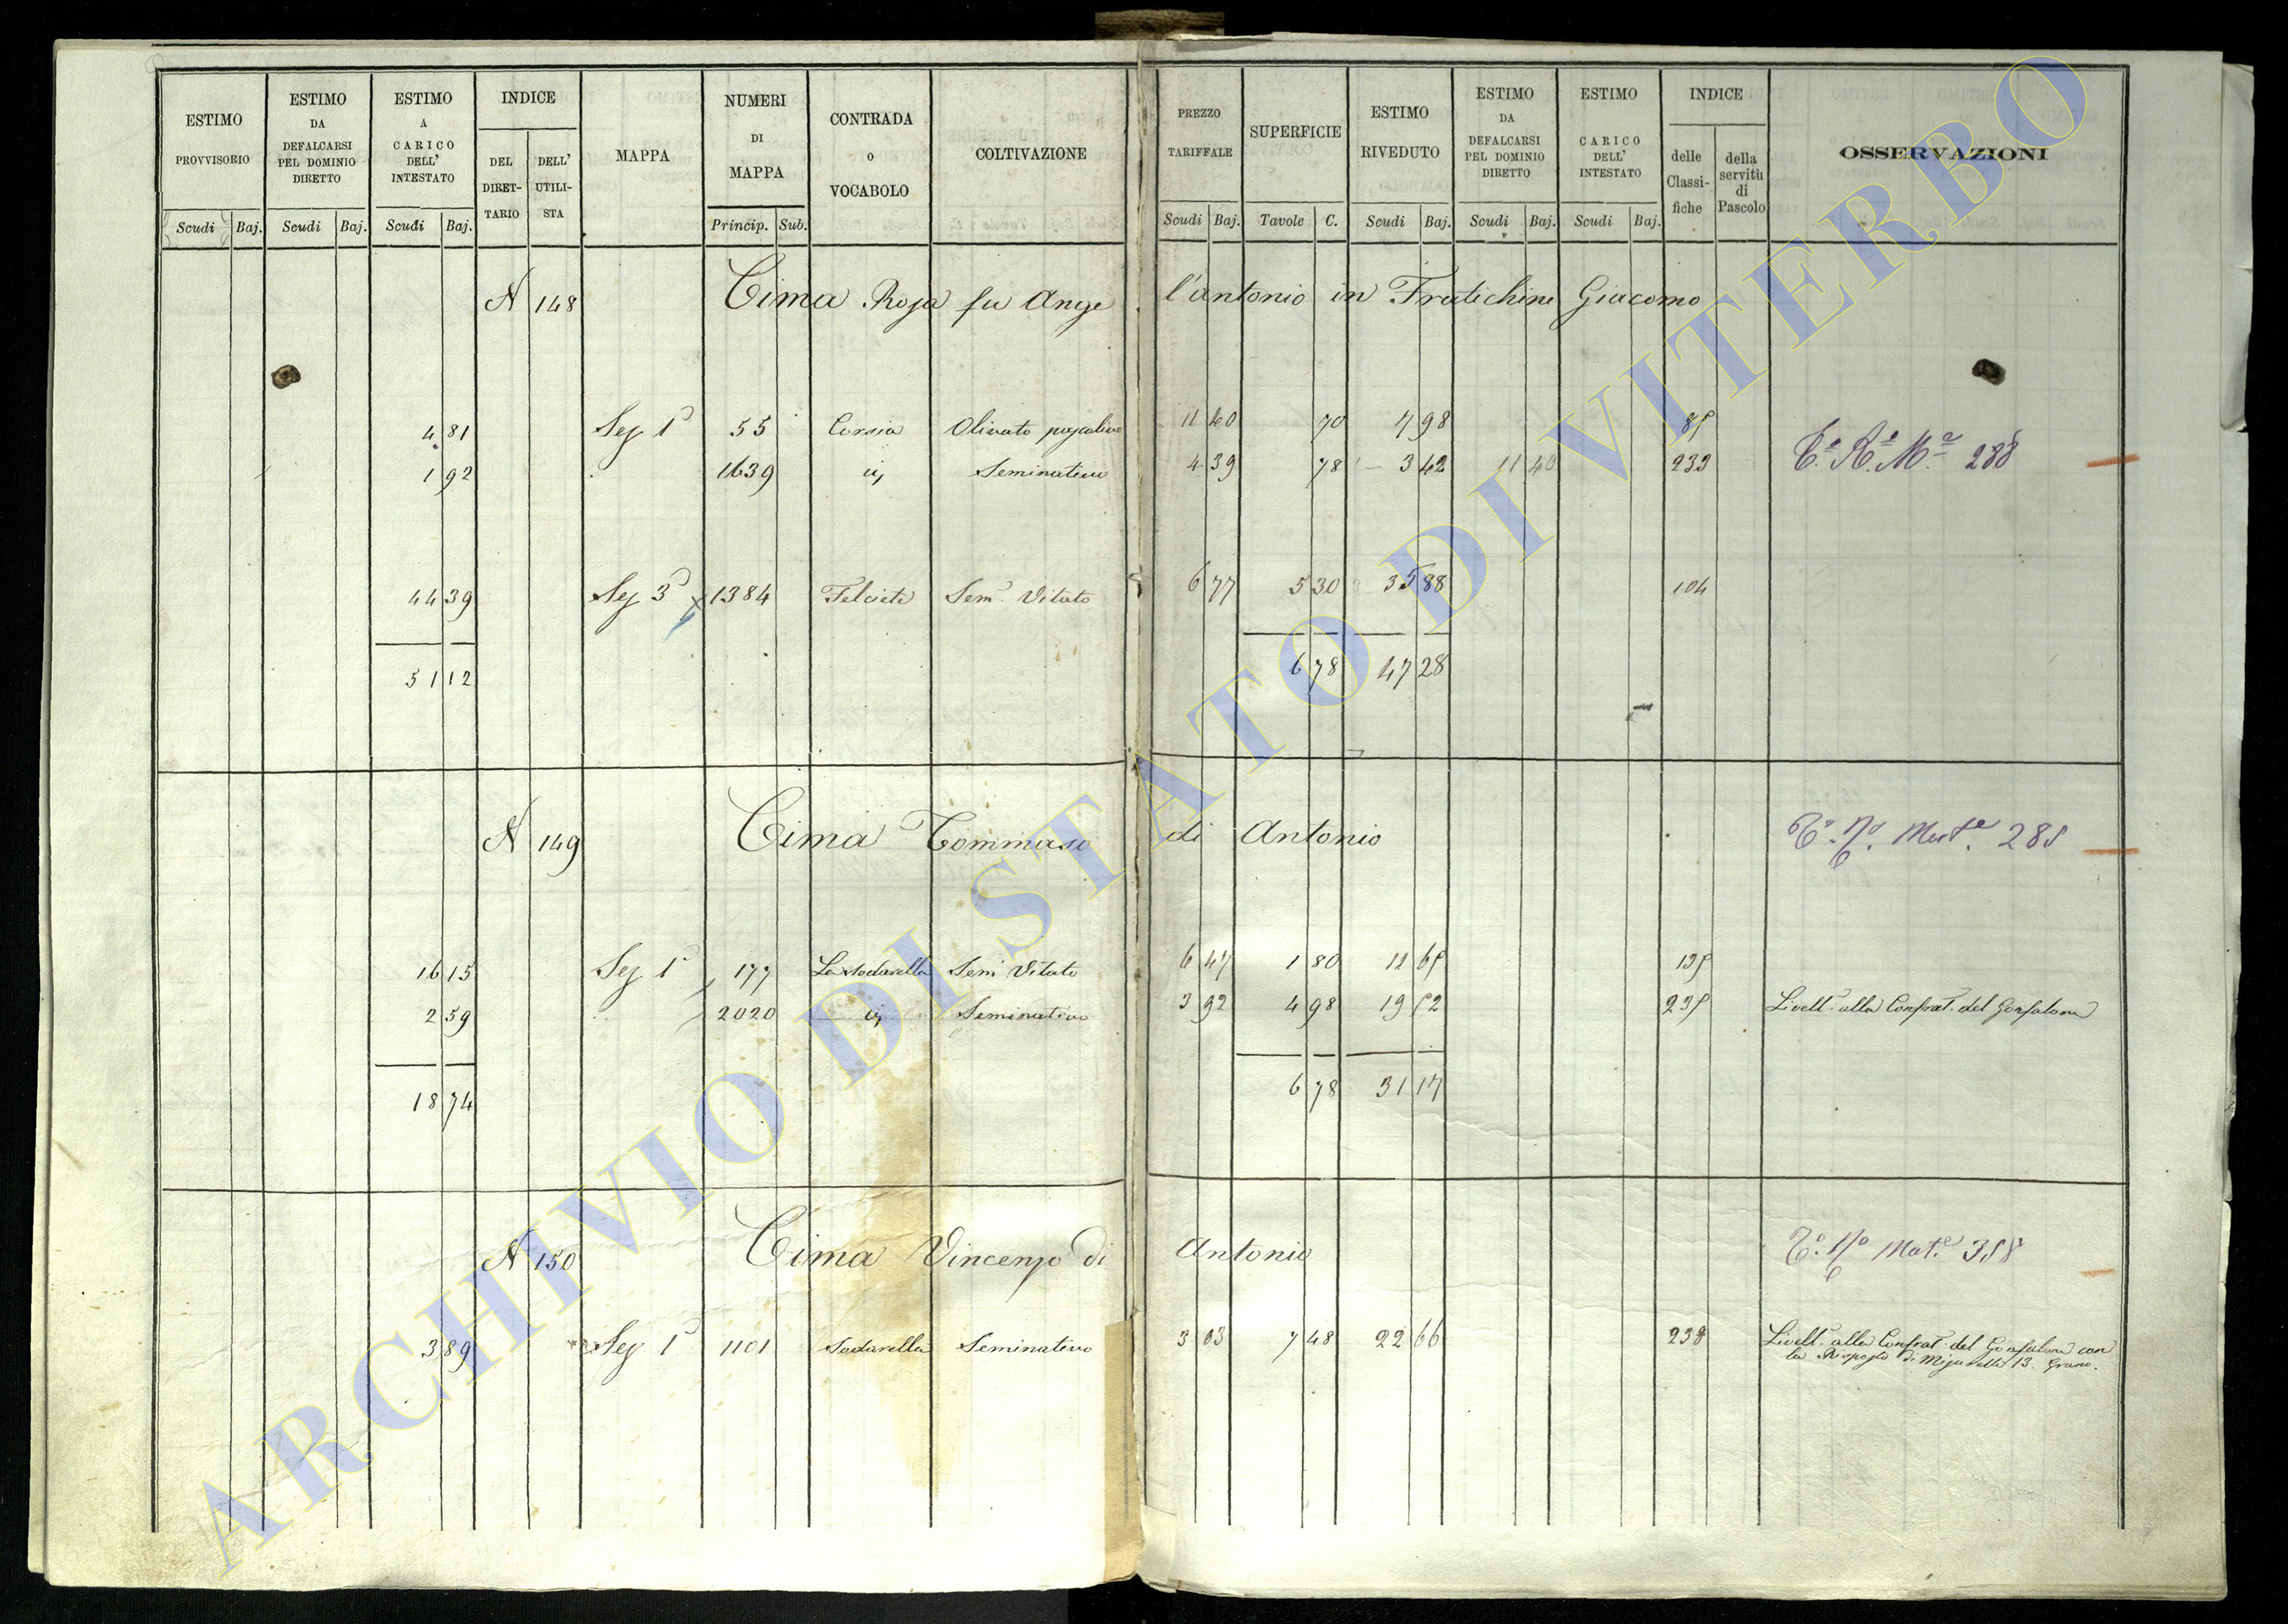 ESTIMO PROVVISORIO
Scudi Baj.
ESTIMO DA DEFALCARSI PEL DOMINIO DIRETTO
Scudi Baj.
ESTIMO A CARICO DELL' INTESTATO
Scudi Baj.
INDICE
DEL DIRETTARIO
DELL' UTILISTA
MAPPA
NUMERI DI MAPPA
Princip. Sub.
CONTRADA O VOCABOLO
COLTIVAZIONE
PREZZO TARIFFALE
Scudi Baj.
SUPERFICIE
Tavole C.
ESTIMO RIVEDUTO
Scudi Baj.
ESTIMO DA DEFALCARSI PEL DOMINIO DIRETTO
Scudi Baj.
ESTIMO CARICO DELL' INTESTATO
Scudi Baj.
INDICE
delle Classifiche
della servitù di Pascolo
OSSERVAZIONI
N 148 Cima Rosa fu Ange l'antonio in Fratichini Giacomo
4 81 Sez 1ª 55 Corsia Olivato 11 40 70 7 98 85
1 92 1639 id Seminativo 4 39 78 3 42 11 40 233 288
44 39 Sez 3ª 1384 Felceti Sem. Vitato 6 77 5 30 35 88 104
51 12 6 78 47 28
N 149 Cima Tommaso di Antonio 285
16 15 Sez 1ª 177 La Sodarella Sem Vitato 6 47 1 80 11 65 135
2 59 2020 id Seminativo 3 92 4 98 19 52 235 Livell. alla Confrat. del Gonfalone
18 74 6 78 31 17
N 150 Cima Vincenzo di Antonio 358
3 89 Sez 1ª 1101 Sodarella Seminativo 3 03 7 48 22 66 238 Livell. alla Confrat. del Gonfalone con
la Risposta di 13. Grano.
ARCHIVIO DI STATO DI VITERBO